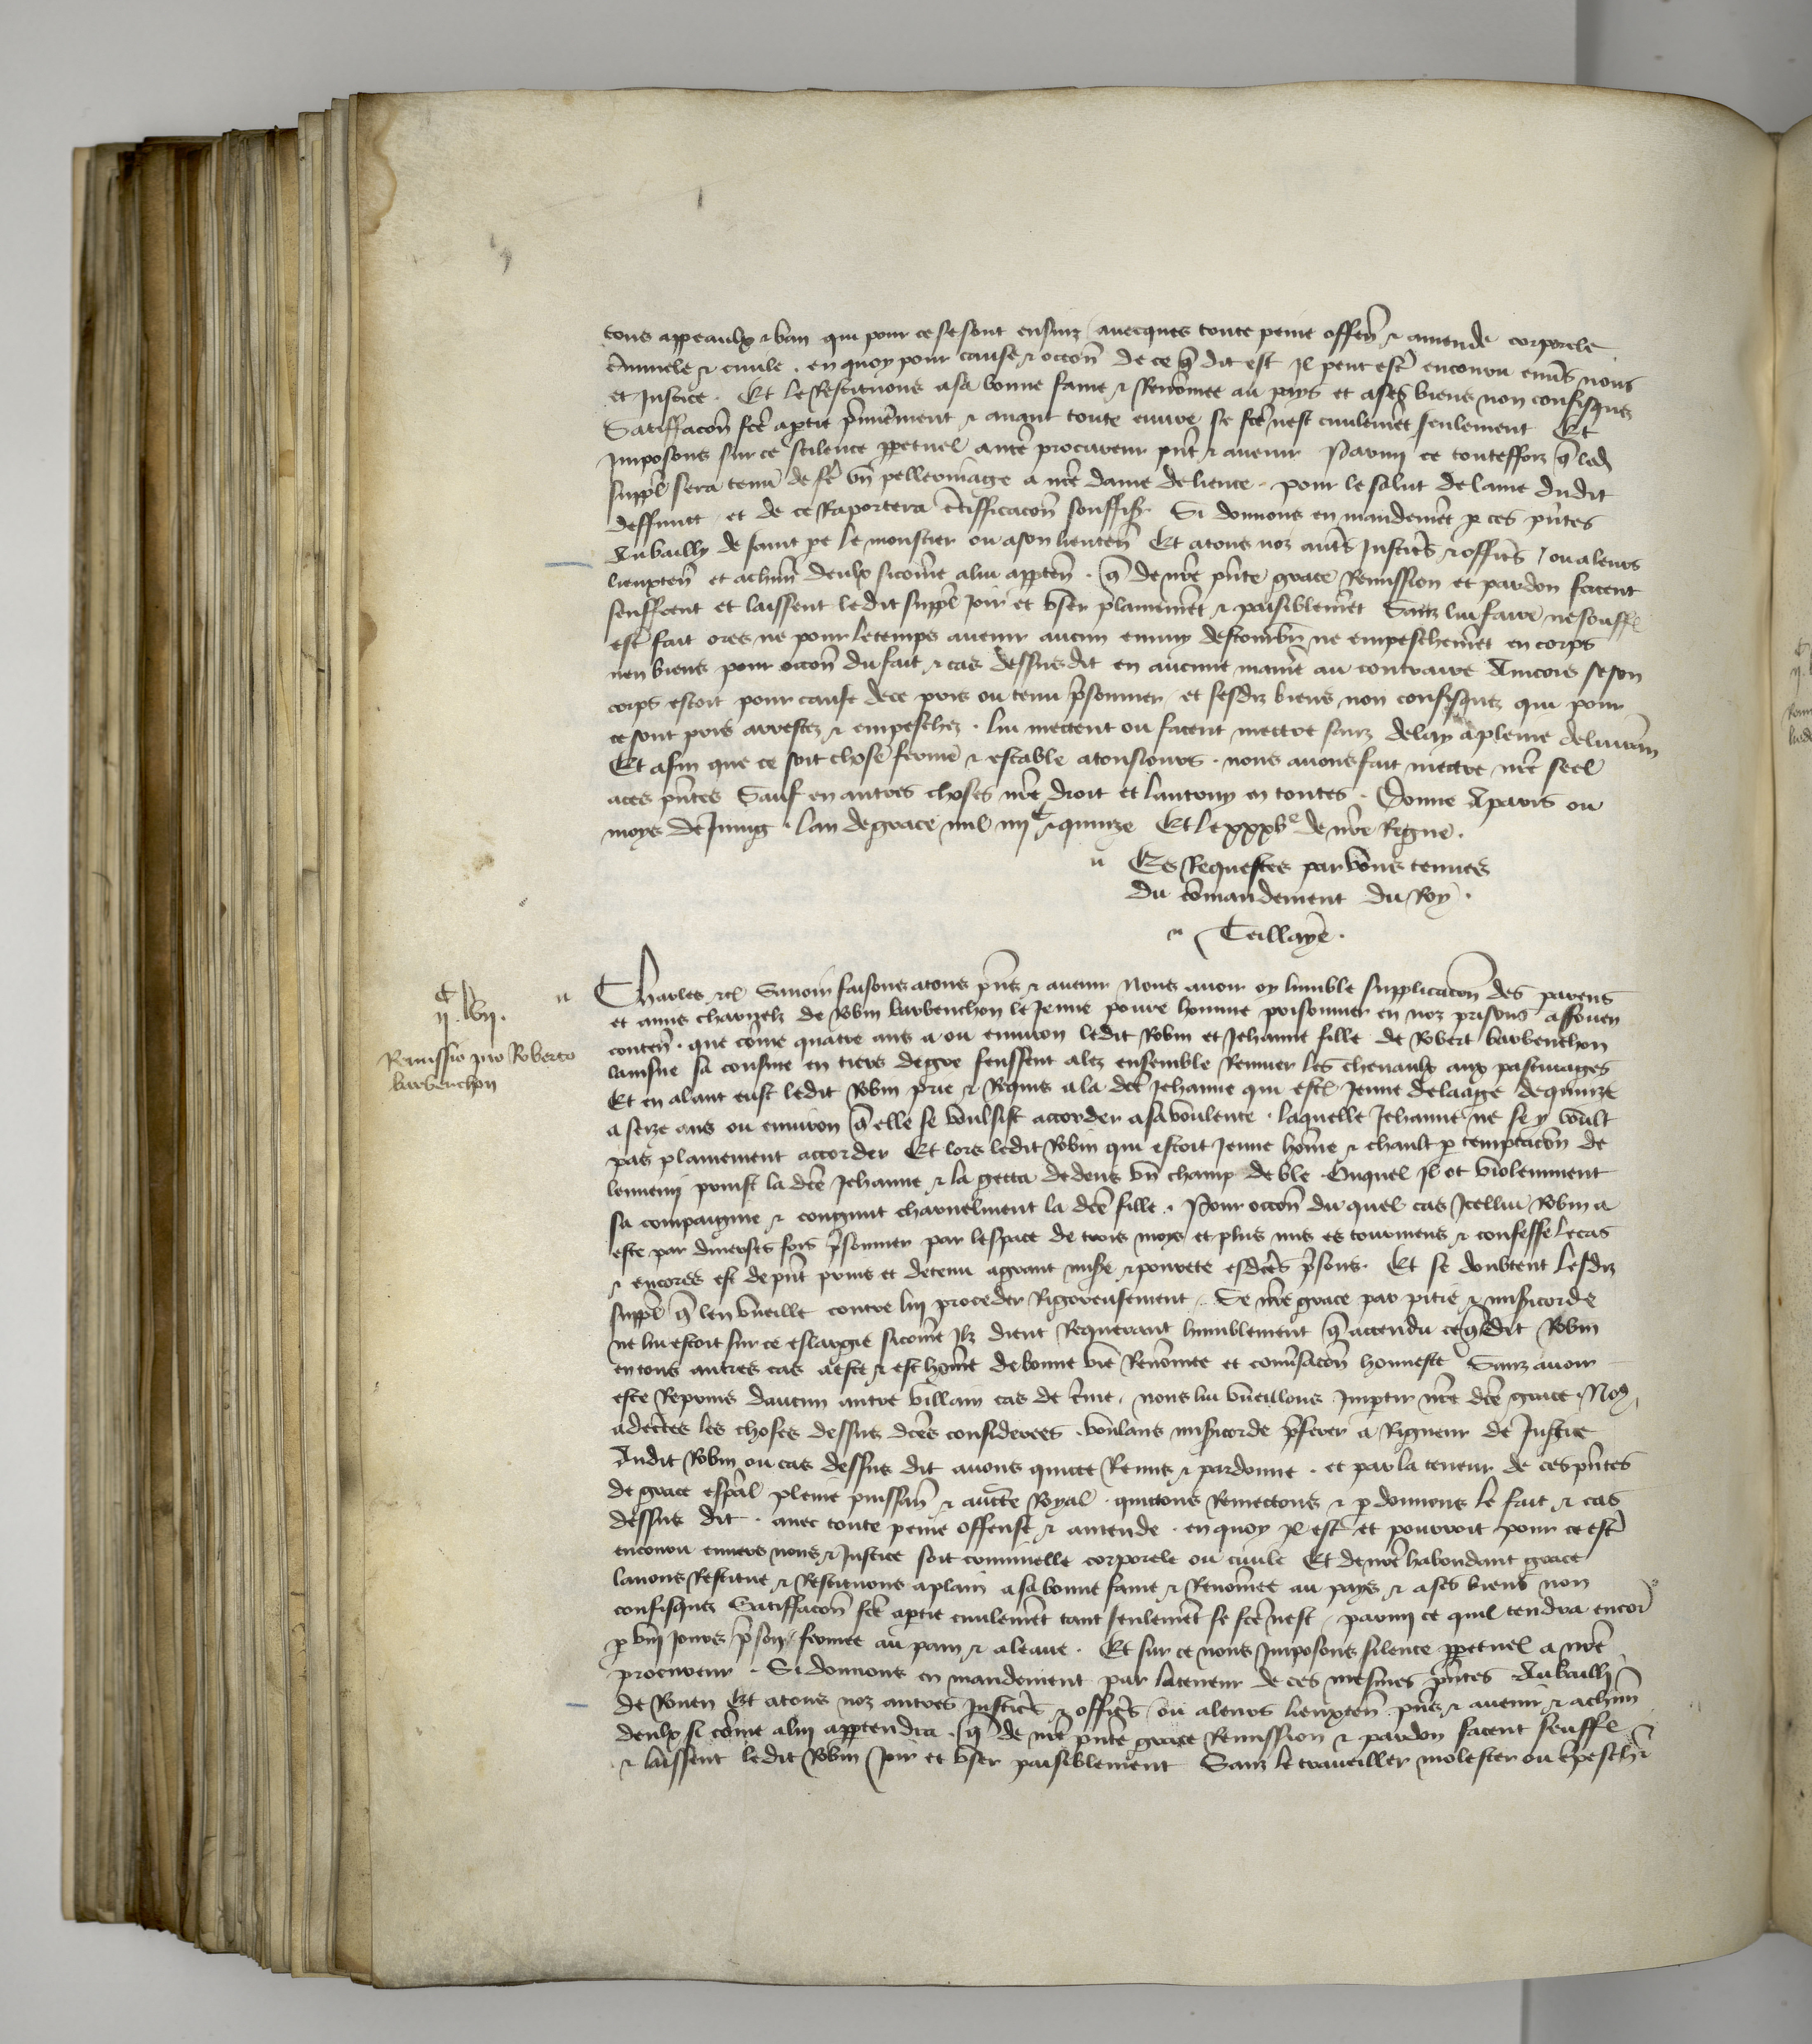 tous appeaulx & ban qui pour ce se sont ensuiz avecques toute peine offen̄ & amende corporele
c̄minele & civile . en quoy pour cause & occōn de ce q̄ dit est Il peut estr̄ encouru env̄s nous
et Justice . Et le Restituons a sa bonne fame & Renōmee au pays et a ses biens non confisquez
Satiffacōn fcē a ptie p̄mierement & avant toute euvre se fcē nest civilemēt seulement Et
Imposons sur ce scilence ppetuel a nrē procureur pn̄t & avenir Parmy ce touteffoiz q̄ led
suppl̄ sera tenu de fē vn pellerinage a nrē dame de lience . pour le salut de lame dudit
deffunct et de ce Raportera c̄tifficacōn souffis̄ . Si donnons en mandemēt p ces pn̄tes
Au bailly de saint pe le monstier ou a son lieuten̄ Et a tous noz autr̄s Justic̄s & offic̄s / ou a leurs
lieuxten̄ et a chūn deulx sicom̄e a lui apptēn . q̄ de nrē pn̄te grace Remission et pardon facent
seuffrent et laissent ledit suppl̄ Joir et vser plainemēt & paisiblemēt Sanz lui faire ne souffr̄
estr̄ fait ores ne pour le temps avenir aucun ennuy destourb̄ ne empeschemēt en corps
nen biens pour occōn du fait & cas dessusdit en aucune manīe au contraire Aincois se son
corps estoit pour cause de ce pris ou tenu p̄sonnier et sesdiz biens non confisquez qui pour
ce sont pris arrestez & empeschez . lui mectent ou facent mectre sanz delay a pleine delivrān
Et afin que ce soit chose ferme & estable a tousiours . nous avons fait mectre nrē seel
a ces pn̄tes Sauf en autres choses nrē droit et lautruy en toutes . Donne A paris ou
moys de Juing . lan de grace mil iiijC & quinze Et le xxxve de nrē Regne .
Es Requestes par vous tenues
du cōmandement du Roy .
Teillaye .
CC
ij . lvij .
Remissio pro Roberto
barbenchon
Charles &c̄ Savoir faisons a tous pn̄s & avenir Nous avoir oy lumble supplicacōn des parens
et amis charnelz de Robin barbenchon le Jeune povre homme prisonnier en noz prisons a Rouen
conten̄ . que cōme quatre ans a ou environ ledit Robin et Jehanne fille de Robert barbenchon
lainsne sa cousine en tiers degre feussent alez ensemble Remuer les chevaulx aux pasturages
Et en alant eust ledit Robin prie & Requis a la dcē Jehanne qui est Jeune de laage de quinze
a seize ans ou environ q̄ elle se voulsist accorder a sa voulente . laquelle Jehanne ne se y voult
pas plainement accorder Et lors ledit Robin qui estoit Jeune hōme & chault p temptacōn de
lennemi prinst la dcē Jehanne & la getta dedens vn champ de ble . Ouquel Il ot violemment
sa compaignie & congnut charnelment la dcē fille . Pour occōn du quel cas Icellui Robin a
este par diverses fois p̄sonnier par lespace de trois moys et plus mis es tourmens & confesse le cas
& encores est de pn̄t prins et detenu a grant mis̄e & povrete esdcēs p̄sons . Et se doubtent lesdiz
suppl̄ q̄ len vueille contre lui proceder Rigoreusement . Se nrē grace par pitie & mis̄icorde
ne lui estoit sur ce eslargie sicom̄e Ilz dient Requerant humblement q̄ actendu ce q̄ ledit Robin
en tous autres cas a este & est hōme de bonne vie Renōmee et convs̄acōn honneste Sanz avoir
este Repris daucun autre villain cas de c̄me . nous lui vueillons Impartir nrē dcē grace . Noꝰ
adcēs les choses dessus dcēs considerees . voulans mis̄icorde p̄ferer a Rigueur de Justice
Audit Robin ou cas dessus dit avons quicte Remis & pardonne . et par la teneur de ces pn̄tes
de grace esp̄al pleine puissan̄ & auct̄e Royal . quictons Remectons & pdonnons le fait & cas
dessus dit . avec toute peine offense & amende . en quoy Il est et pourroit pour ce estr̄
encouru envers nous & Justice soit criminelle corporele ou civile Et de nrē habondant grace
lavons Restitue & Restituons a plain a sa bonne fame & Renōmee au pays & a ses biens non
confisquez Satiffacōn fcē a ptie civilemēt tant seulemēt se fcē nest . parmi ce quil tendra encor̄
p viij jours p̄son fermee au pain & a leaue . Et sur ce nous Imposons silence ppetuel a nrē
procureur . Si donnons en mandement par la teneur de ces mesmes pn̄tes . Au bailli
de Rouen Et a tous noz autres Justic̄s & offic̄s ou a leurs lieuxten̄ pn̄s & avenir & a chūn
deulx si cōme a lui apptendra . q̄ de nrē pn̄te grace Remission & pardon facent seuffr̄
& laissent ledit Robin Joir et vser paisiblement Sanz le traveiller molester ou ēpeschr̄